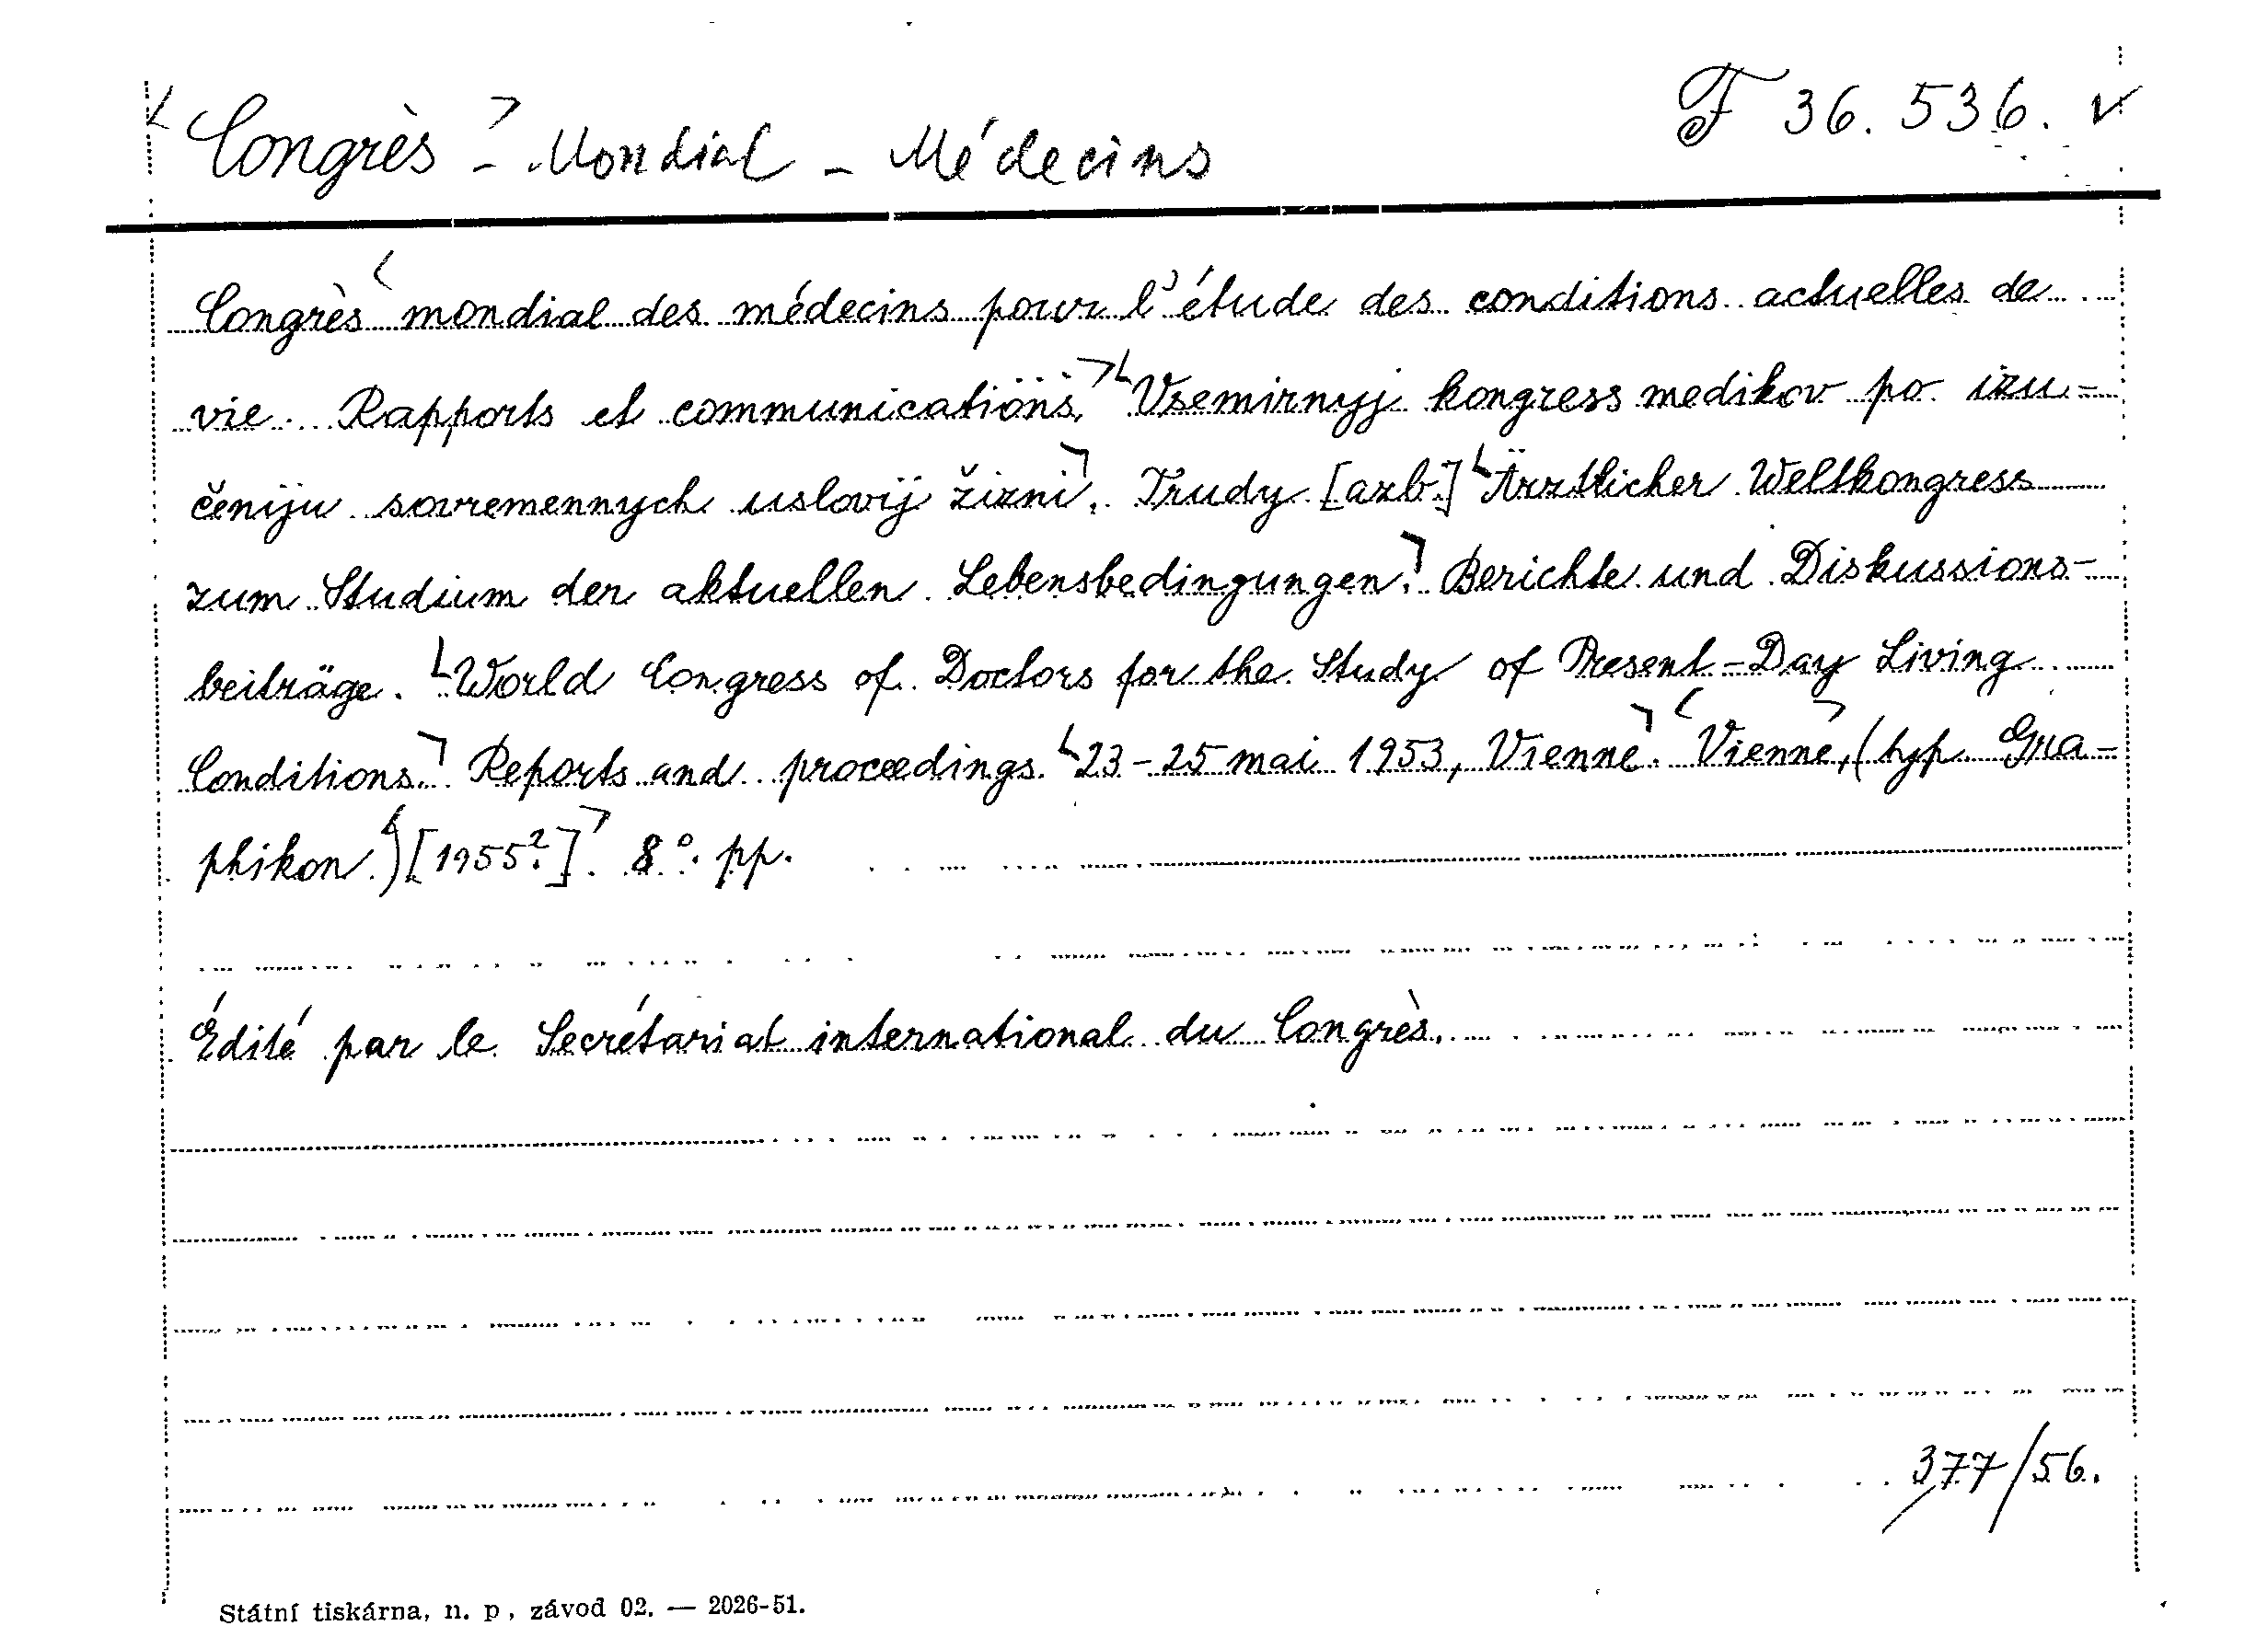 Congrès - Mondial - Médecins
F 36.536.
Congrès mondial des médecins pour l'étude des conditions actuelles de
vie. Rapports et communications. Vsemirnyj kongress medikov po izu-
čeniju sovremennych uslovij žizni. Trudy [azb.] Ärztlicher Weltkongress
zum Studium der aktuellen Lebensbedingungen. Berichte und Diskussions-
beiträge. World Congress of Doctors for the Study of Present-Day Living
Conditions. Reports and proceedings. 23-25 mai 1953, Vienne. Vienne, (typ. Gra-
phikon.) [1955?]. 8°. pp.
Édité par le Secrétariat international du Congrès.
377/56.
Státní tiskárna, n. p., závod 02. — 2026-51.